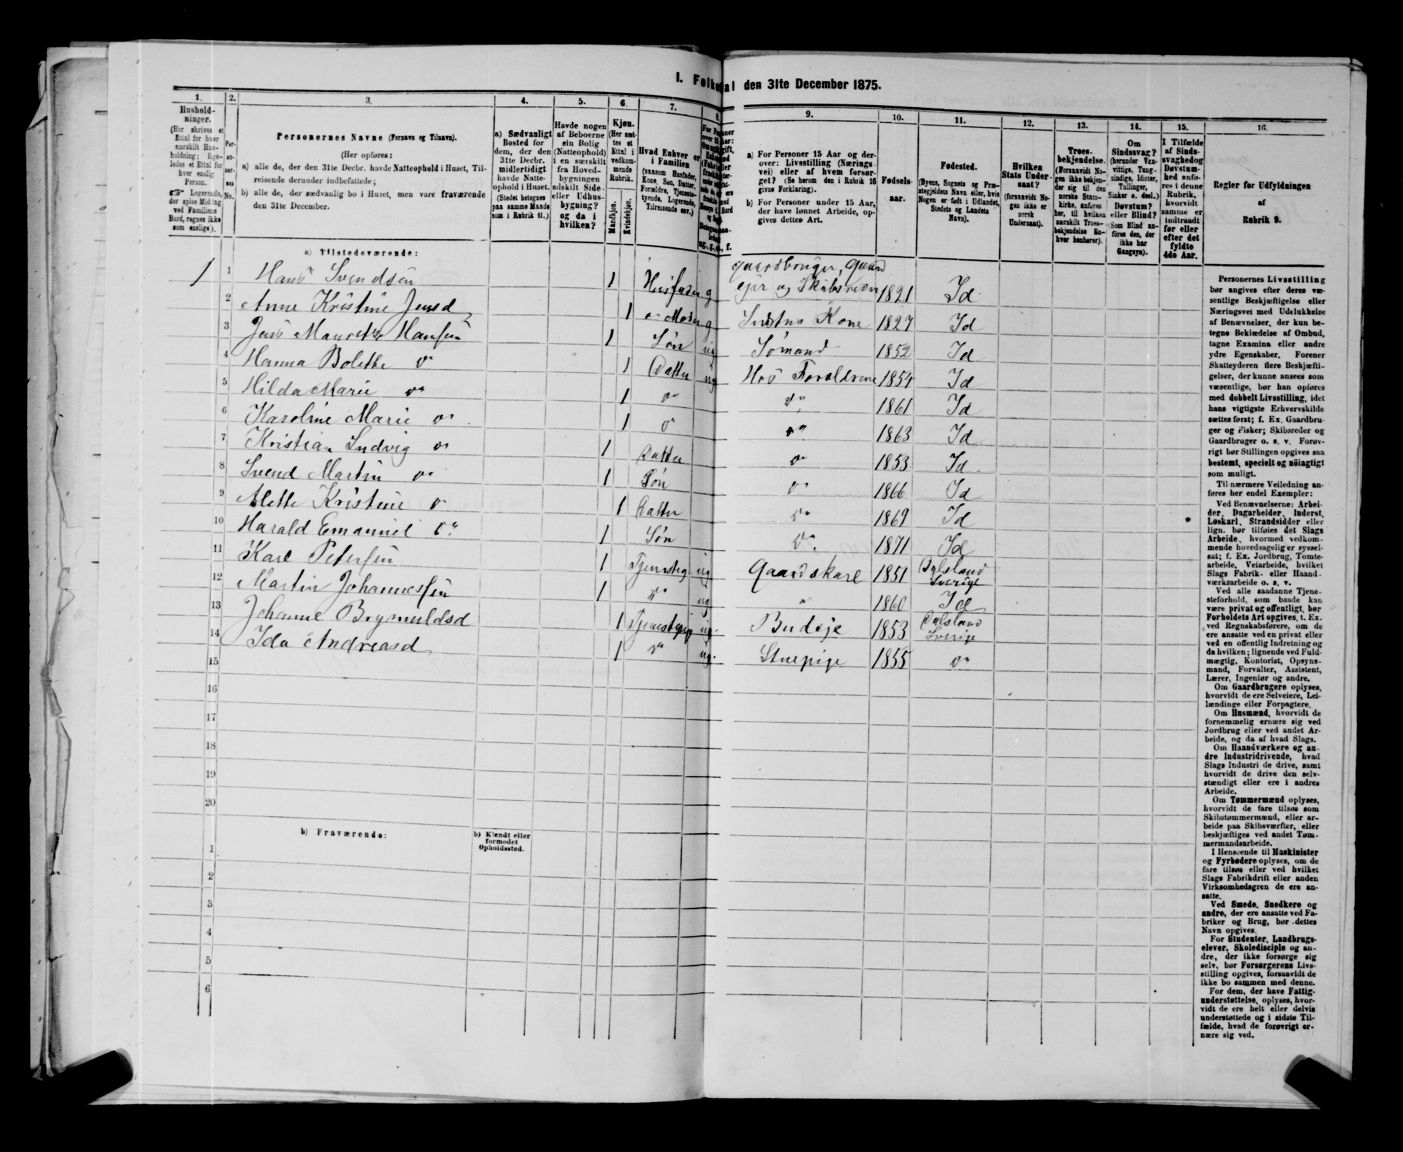 I. Folketal den 31te December 1875.
1. 2. 3. 4. 5. 6. 7. 8. 9. 10. 11. 12. 13. 14. 15. 16.
Hushold-
ninger.
(Her skrives et
Ettal for hver
særskilt Hus-
holdning; lige-
ledes et Ettal for
hver enslig
Person.
☞ Logerende,
der spise Middag
ved Familiens
Bord, regnes ikke
som enslige).
Personernes Navne (Fornavn og Tilnavn).
(Her opføres:
a) alle de, der den 31te Decbr. havde Natteophold i Huset, Til-
reisende derunder indbefattede;
b) alle de, der sædvanlig bo i Huset, men vare fraværende
den 31te December.
a) Sædvanligt
Bosted for
dem, der den
31te Decbr.
midlertidigt
havde Natte-
ophold i Huset.
(Stedet betegnes
paa samme Maade
som i Rubrik 11.)
Havde nogen
af Beboerne
sin Bolig
(Natteophold)
i en særskilt
fra Hoved-
bygningen
adskilt Side-
eller Udhus-
bygning?
og da i
hvilken?
Kjøn.
(Her sæt-
tes et
Ettal i
vedkom-
mende
Rubrik.
Mandkjøn.
Kvindekjøn.
Hvad Enhver er
i Familien
(saasom Husfader,
Kone, Søn, Datter,
Forældre, Tjeneste-
tyende, Logerende,
Tilreisende osv.)
a) For Personer 15 Aar og der-
over: Livsstilling (Nærings-
vei) eller af hvem forsør-
get? (Se herom den i Rubrik 16
givne Forklaring).
b) For Personer under 15 Aar,
der have lønnet Arbeide, op-
gives dettes Art.
Fødsels-
aar.
Fødested.
(Byens, Sognets og Præ-
stegjeldets Navn eller, hvis
Nogen er født i Udlandet,
Stedets og Landets
Navn).
Hvilken
Stats Under-
saat?
(forsaavidt No-
gen ikke er
norsk
Undersaat).
Troes-
bekjendelse.
(Forsaavidt No-
gen ikke bekjen-
der sig til den
norske Stats-
kirke, anføres
her, til hvilken
særskilt Troes-
bekjendelse En-
hver henhører).
Om
Sindssvag?
(herunder Van-
vittige, Tung-
sindige, Idioter,
Tullinger,
Sinker o. desl.)
Døvstum?
eller Blind?
(Som Blind an-
føres den, der
ikke har
Gangsyn).
I Tilfælde
af Sinds-
svaghed og
Døvstum-
hed anfø-
res i denne
Rubrik,
hvorvidt
samme er
indtraadt
før eller
efter det
fyldte
4de Aar.
Regler for Udfyldningen
af
Rubrik 9.
a) Tilstedeværende:
1 1 Hans Svendsen 1 Husfader g Gaardbruger, Gaard
ejer og Skibsreder 1821 Id
2 Anne Kristine Jensd 1 Moder g Kone 1827 Id
3 Jens Mauritz Hansen 1 Søn ug Sømand 1852 Id
4 Hanna Bolette do 1 Datter ug Hos Forældrene 1854 Id
5 Hilda Marie do 1 do do 1861 Id
6 Karoline Marie do 1 do do 1863 Id
7 Kristian Ludvig do 1 Datter do 1853 Id
8 Svend Martin do 1 Søn do 1866 Id
9 Mette Kristine do 1 Datter do 1869 Id
10 Harald Emanuel do 1 Søn do 1871 Id
11 Karl Petersen 1 ug Gaardskarl 1851 Dalsland
Sverige
12 Martin Johannessen 1 do ug " 1860 Id
13 Johanne 1 ug. Budeje 1853 Dalsland
Sverige
14 Ida Andreasd 1 do ug. Stuepige 1855 do
15
16
17
18
19
20
b) Fraværende:
b) Kjendt eller
formodet
Opholdssted.
1
2
3
4
5
6
Personernes Livsstilling
bør angives efter deres væ-
sentlige Beskjæftigelse eller
Næringsvei med Udelukkelse
af Benævnelser, der kun be-
tegne Beklædelse af Ombud,
tagne Examina eller andre
ydre Egenskaber. Forener
Skatteyderen flere Beskjæfti-
gelser, der kunne ansees som
væsentlige, bør han opføres
med dobbelt Livsstilling, idet
hans vigtigste Erhvervskilde
sættes først; f. Ex. Gaardbru-
ger og Fisker; Skibsreder og
Gaardbruger o. s. v. Forøv-
rigt bør Stillingen opgives saa
bestemt, specielt og nöiagtigt
som muligt.
Til nærmere Veiledning an-
føres her endel Exempler:
Ved Benævnelserne: Arbei-
der, Dagarbeider, Inderst,
Løskarl, Strandsidder eller
lign. bør tilføies det Slags
Arbeide, hvormed vedkom-
mende hovedsagelig er syssel-
sat; f. Ex. Jordbrug, Tomte-
arbeide, Veiarbeide, hvilket
Slags Fabrik- eller Haand-
værksarbeide o. s. v.
Ved alle saadanne Tjene-
steforhold, som baade kan
være privat og offentligt, bør
Forholdets Art opgives, t. Ex.
ved Regnskabsførere, om de
ere ansatte ved en privat eller
ved en offentlig Indretning og
da hvilken; lignende ved Fuld-
mægtig, Kontorist, Opsyns-
mand, Forvalter, Assistent,
Lærer, Ingeniør og andre.
Om Gaardbrugere oplyses,
hvorvidt de ere Selveiere, Lei-
lændinge eller Forpagtere.
Om Husmænd, hvorvidt de
fornemmelig ernære sig ved
Jordbrug eller ved andet Ar-
beide, og da af hvad Slags.
Om Haandværkere og an-
dre Industridrivende, hvad
Slags Industri de drive, samt
hvorvidt de drive den selv-
stændigt eller ere i andres
Arbeide.
Om Tømmermænd oplyses,
hvorvidt de fare tilsøs som
Skibstømmermænd, eller ar-
beide paa Skibsværfter, eller
beskjæftiges ved andet Tøm-
mermandsarbeide.
I Henseende til Maskinister
og Fyrbødere oplyses, om de
fare tilsøs eller ved hvilket
Slags Fabrikdrift eller anden
Virksomhedsgren de ere an-
satte.
Ved Smede, Snedkere og
andre, der ere ansatte ved Fa-
briker og Brug, bør dettes
Navn opgives.
For Studenter, Landbrugs-
elever, Skoledisciple og an-
dre, der ikke forsørge sig
selv, bør Forsørgerens Livs-
stilling opgives, forsaavidt de
ikke bo sammen med denne.
For dem, der have Fattig-
understøttelse, oplyses, hvor-
vidt de ere helt eller delvis
understøttede og i sidste Til-
fælde, hvad de forøvrigt er-
nære sig ved.